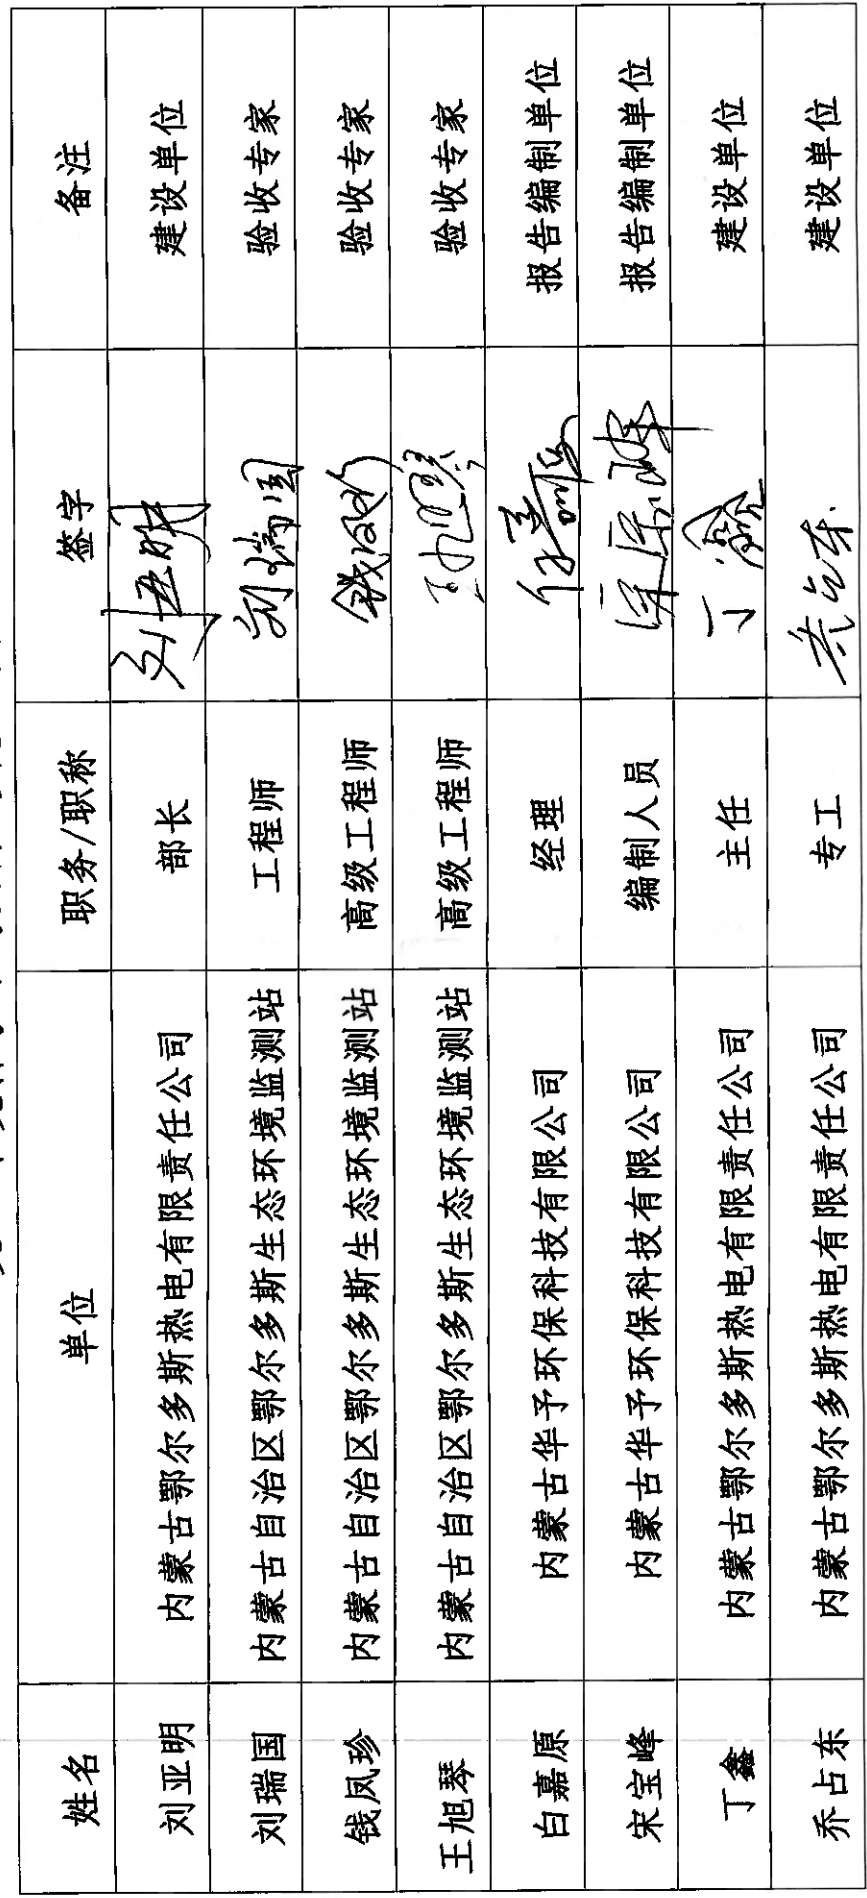 姓名 单位 职务/职称 签字 备注
刘亚明 内蒙古鄂尔多斯热电有限责任公司 部长 刘亚明 建设单位
刘瑞国 内蒙古自治区鄂尔多斯生态环境监测站 工程师 刘瑞国 验收专家
钱凤珍 内蒙古自治区鄂尔多斯生态环境监测站 高级工程师 验收专家
王旭琴 内蒙古自治区鄂尔多斯生态环境监测站 高级工程师 验收专家
白嘉原 内蒙古华予环保科技有限公司 经理 报告编制单位
宋宝峰 内蒙古华予环保科技有限公司 编制人员 报告编制单位
丁鑫 内蒙古鄂尔多斯热电有限责任公司 主任 丁鑫 建设单位
乔占东 内蒙古鄂尔多斯热电有限责任公司 专工 建设单位